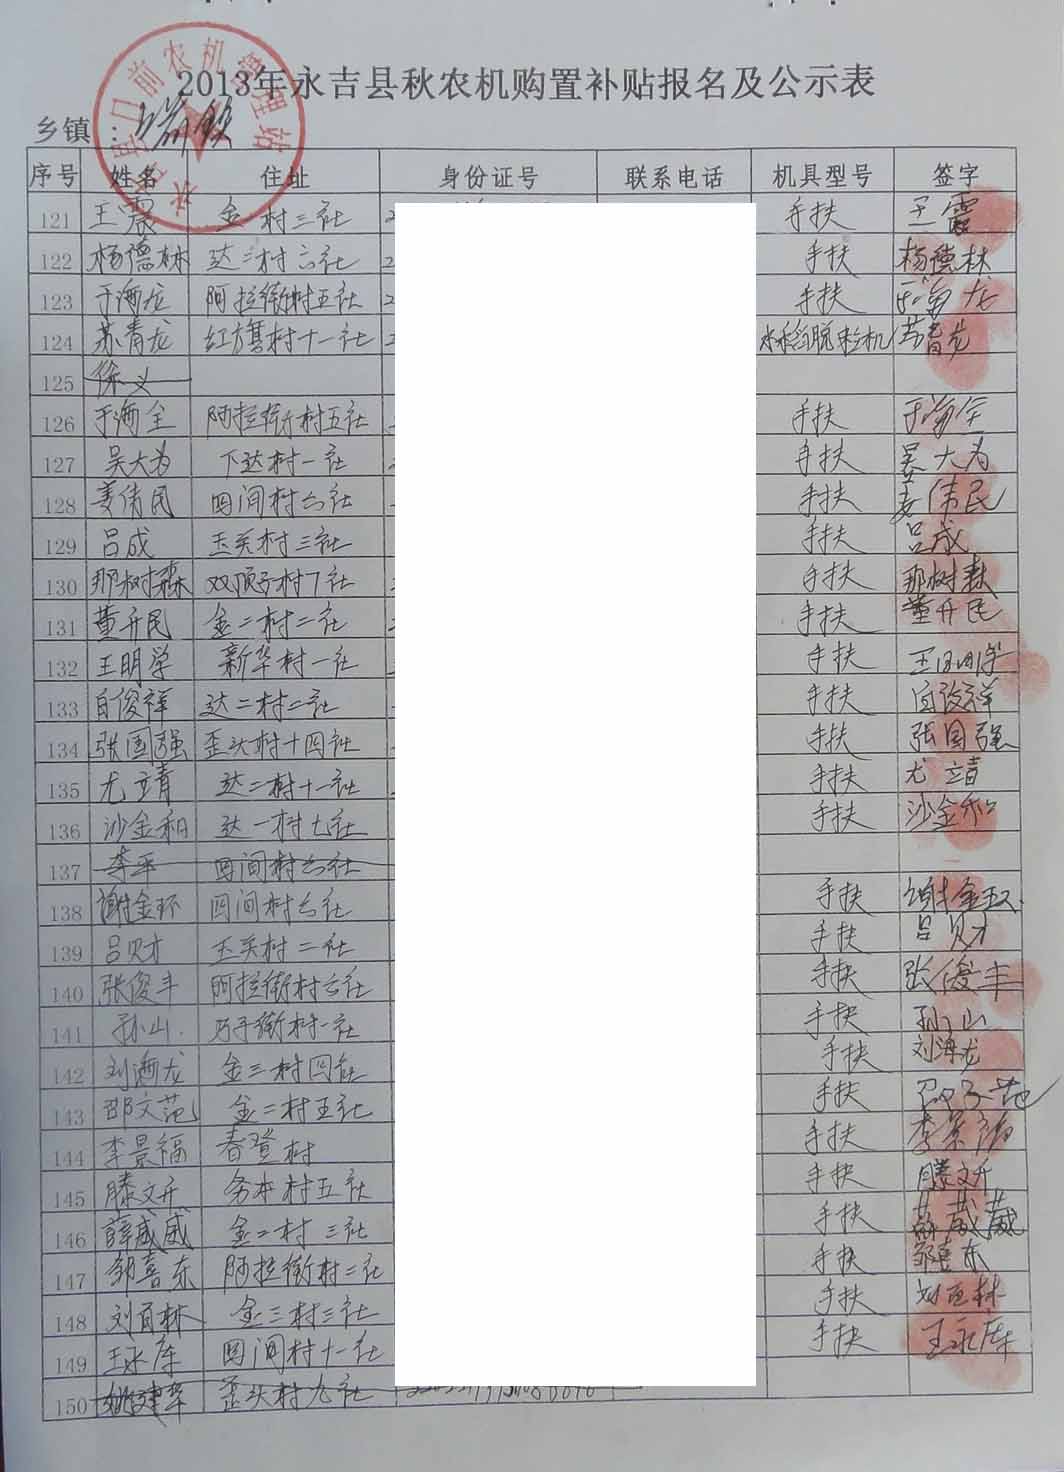 2013年永吉县秋农机购置补贴报名及公示表
乡镇：
序号 姓名 住址 身份证号 联系电话 机具型号 签字
121 王震 金一村三社 手扶 王震
122 杨德林 达二村六社 手扶 杨德林
123 于海龙 阿拉街村五社 手扶 于海龙
124 苏青龙 红旗村十一社 水稻脱粒机 苏青龙
125 徐义
126 于海全 阿拉街村五社 手扶 于海全
127 吴大为 下达村一社 手扶 吴大为
128 姜伟民 四间村六社 手扶 姜伟民
129 吕成 玉关村三社 手扶 吕成
130 那树森 双顶子村7社 手扶 那树森
131 董开民 金二村二社 手扶 董开民
132 王明学 新华村一社 手扶 王明学
133 白俊祥 达二村二社 手扶
134 张国强 歪头村十四社 手扶 张国强
135 尤立青 达二村十一社 手扶 尤立青
136 沙金和 达一村七社 手扶 沙金和
137 李平 四间村六社
138 谢金环 四间村六社 手扶 谢金环
139 吕财 玉关村二社 手扶 吕财
140 张俊丰 阿拉街村六社 手扶 张俊丰
141 孙山 街村一社 手扶 孙山
142 刘海龙 金三村四社 手扶 刘海龙
143 邵文范 金二村五社 手扶
144 李景福 春登村 手扶 李景福
145 滕文升 务本村五社 手扶 滕文升
146 薛威威 金二村三社 手扶
147 邹喜东 阿拉街村二社 手扶 邹喜东
148 刘百林 金三村三社 手扶
149 王永库 四间村十一社 手扶 王永库
150 姚建华 歪头村九社